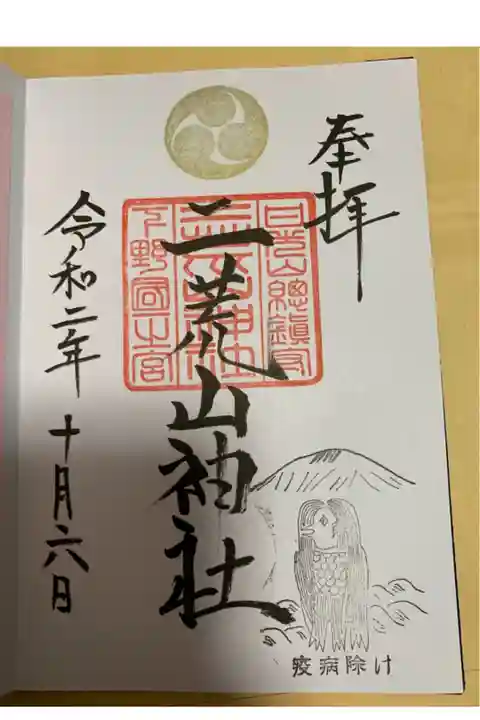 奉拝
日光山總鎮守
二荒山神社
下野國一宮
二荒山神社
令和二年 十月六日
疫病除け